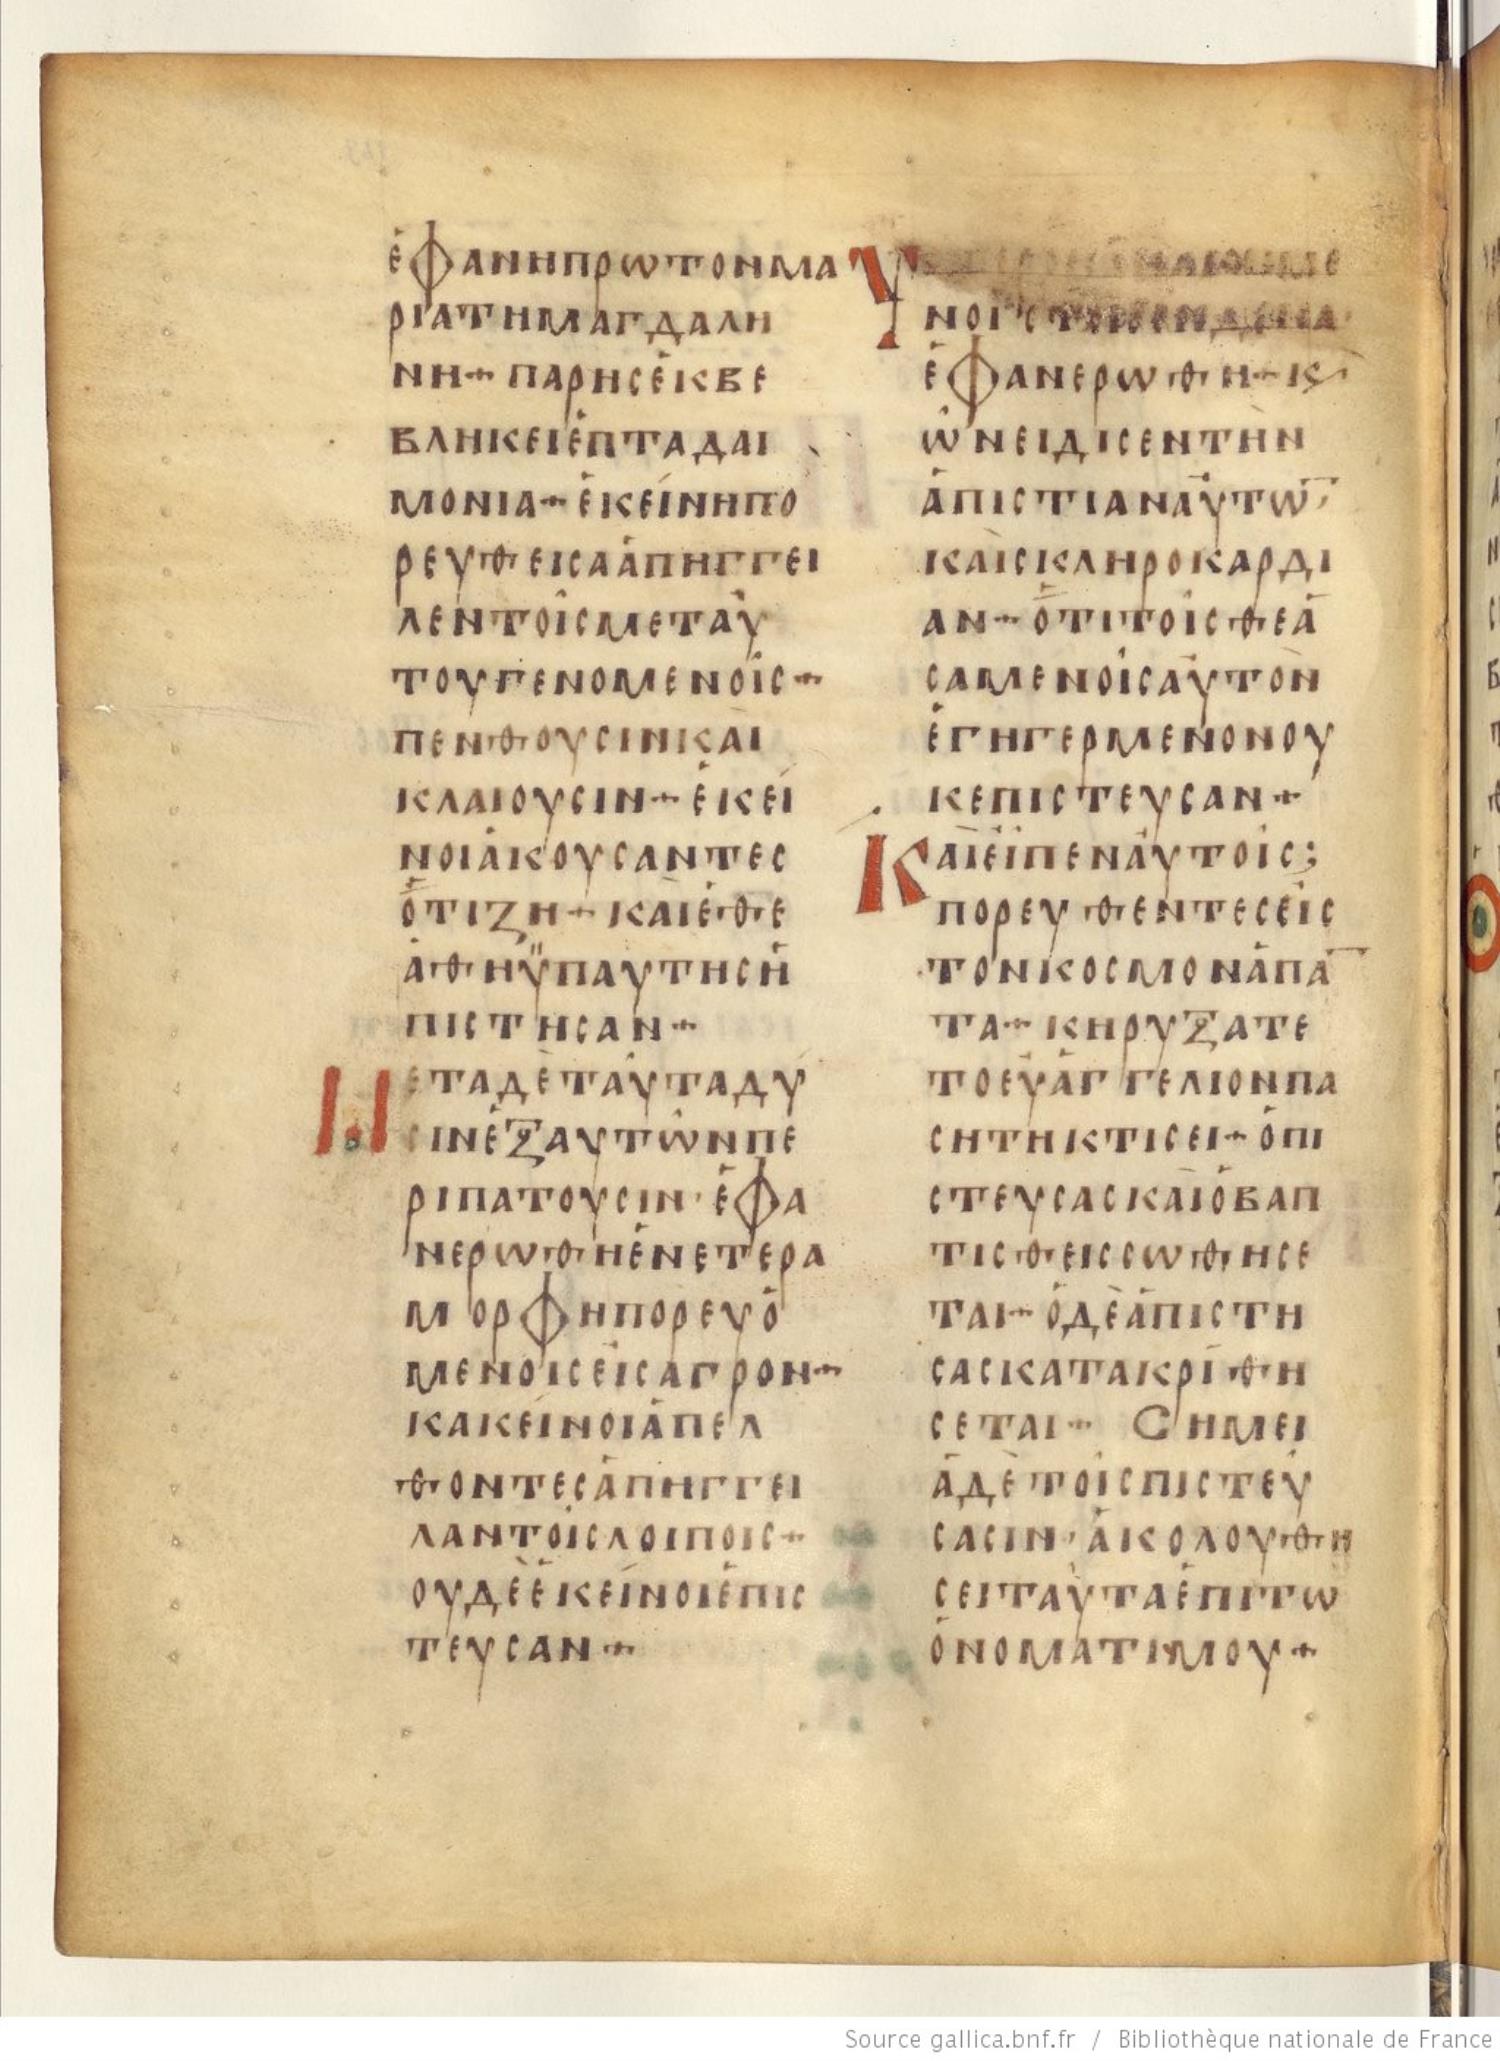 ἐφανηπρωτονμα
ριατημαγδαλη
νη+παρησἐκβε
βληκειἑπταδαι
μονια+ἐκείνηπο
ρευθεισαἀπηγγει
λεντοῖσμεταὐ
τουγενομενοισ+
πενθουσινκαὶ
κλαιουσιν+ἐκεί
νοιἀκουσαντεσ
ὅτιζη+καὶἐθε
ἀθηϋπαυτησἠ
πιστησαν+
Μεταδὲταῦταδυ
σινἐξαυτῶνπε
ριπατουσιν·ἐφα
νερωθηἐνετερα
μορφηπορευὀ
μενοισεἰσαγρον+
κακείνοιἀπελ
θοντεσἀπηγγει
λαντοῖσλοιποισ+
ουδὲἐκείνοιἐπισ
τευσαν+
νοισ
ἐφανερωθη+κ
ὠνειδισεντὴν
ἀπιστιαναὐτῶ
καὶσκληροκαρδι
αν+ὅτιτοῖσθεα
σαμενοισαὐτὸν
ἐγηγερμενονου
κεπιστευσαν+
Καὶεἶπεναὐτοῖσ;
πορευθεντεσεἰσ
τονκοσμονἁπα
τα+κηρυξατε
τοεὐαγγελιονπα
σητηκτισει+ὁπι
στευσασκαὶὁβαπ
τισθεισσωθησε
ται+ὁδὲἀπιστη
σασκατακρίθη
σεται+Σημεῖ
ἀδὲτοῖσπιστεύ
σασιν·ἀκολουθη
σειταῦταἐπιτω
ὀνοματιμου+
Source gallica.bnf.fr / Bibliothèque nationale de France